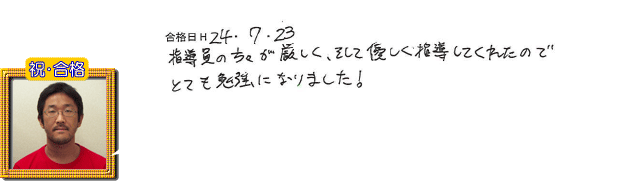 祝・合格
合格日 H 24. 7. 23
指導員の方々が厳しく、そして優しく指導してくれたので
とても勉強になりました!